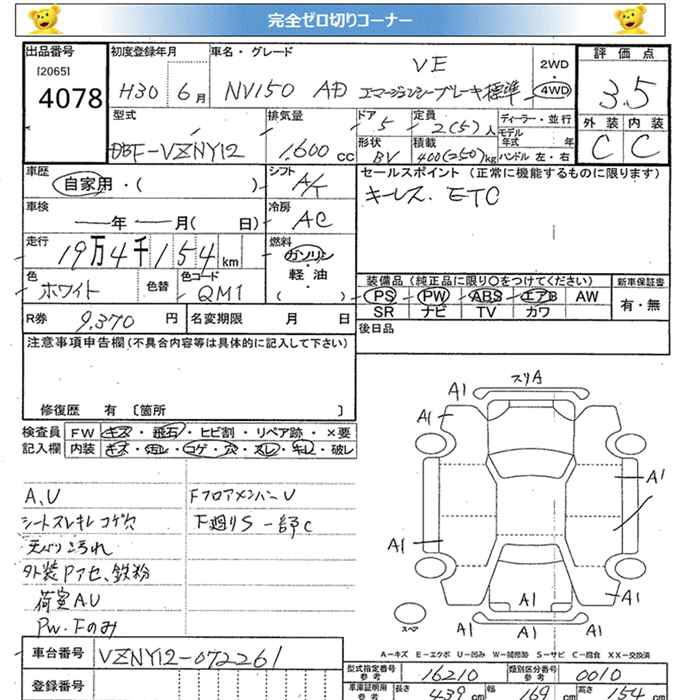 完全ゼロ切りコーナー
出品番号 初度登録年月 車名・グレード 2WD 評価点
[2065] 4078 H30 6月 NV150 AD VE エマージェンシーブレーキ標準 4WD 3.5
型式 排気量 ドア 定員 ディーラー・並行 外装 内装
DBF-VZNY12 1.600cc 5 2(5)人 モデル年式 年 C C
形状 積載 ハンドル 左・右
BV 400(250)kg
車歴 シフト セールスポイント(正常に機能するものに限ります)
自家用・( ) A/T キーレス. ETC
車検 冷房
年 月( 日) AC
走行 燃料
19万4千154km ガソリン
軽・油
( )
色 色替 色コード 装備品(純正品に限り○をつけてください) 新車保証書
ホワイト QM1 PS PW ABS エアB AW 有・無
SR ナビ TV カワ
R券 9,370円 名変期限 月 日 後日品
注意事項申告欄(不具合内容等は具体的に記入して下さい)
修復歴 有 〔箇所 〕
検査員 FW キズ・飛石・ヒビ割・リペア跡・×要
記入欄 内装 キズ・汚レ・コゲ・穴・スレ・キレ・破レ
A,U FフロアメンバーU
シートスレキレコゲ穴 下廻りS一部C
天バリ汚れ
外装Pアセ、鉄粉
荷室A.U
PW.Fのみ
スリA
A1
A1
A1
A1
A1
A1
A1 A1
スペア
A-キズ E-エクボ U-凹み W-補修跡 S-サビ C-腐食 XX-交換済
車台番号 VZNY12-072261
型式指定番号 参考 16210 類別区分番号 参考 0010
登録番号 車庫証明用 参考 長さ 439cm 幅 169cm 高さ 154cm